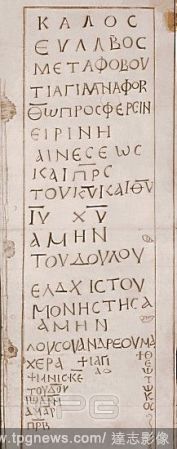 ΚΑΛΟϹ
ΕΥΛΑΒΟϹ
ΜΕΤΑΦΟΒΟΥ
ΤΙΑΓΙΑΝΑΦΟΡ
ΘΩΠΡΟϹΦΕΡΕΙΝ
ΕΙΡΙΝΗ
ΑΙΝΕϹΕΩϹ
ΚΑΙΠΡϹ
ΤΟΥΚΥΚΑΙΘΥ
ΙΥ ΧΥ
ΑΜΗΝ
ΤΟΥΔΟΥΛΟΥ
ΕΛΑΧΙϹΤΟΥ
ΜΟΝΗϹΤΗϹΑ
ΑΜΗΝ
ΛΟΥϹΟΥΑΝΔΡΕΟΥΜΑ
ΧΕΡΑ
ΤΟΥΔΟΥ
ΑΜΑΡ
www.tpgnews.com
達志影像
TPG